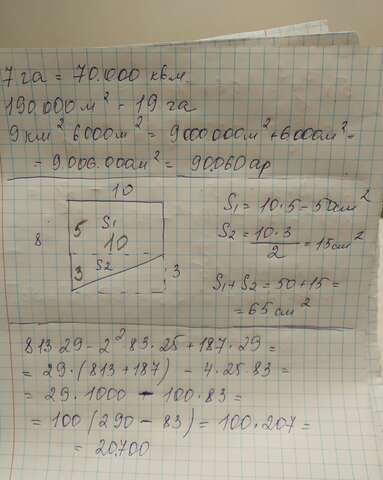 7 га = 70.000 квм
190.000м² - 19 га
9км² 6000м² = 9000000м² + 6000м² =
- 9.006.000м² = 90060 ар
10
8
5
S₁
10
S₂
3
3
S₁ = 10·5 - 50см²
S₂ = 10·3 / 2 = 15см²
S₁+S₂ = 50+15 =
= 65см²
813·29 - 2²·83·25 + 187·29 =
= 29·(813+187) - 4·25·83 =
= 29·1000 - 100·83 =
= 100(290 - 83) = 100·207 =
= 20.700